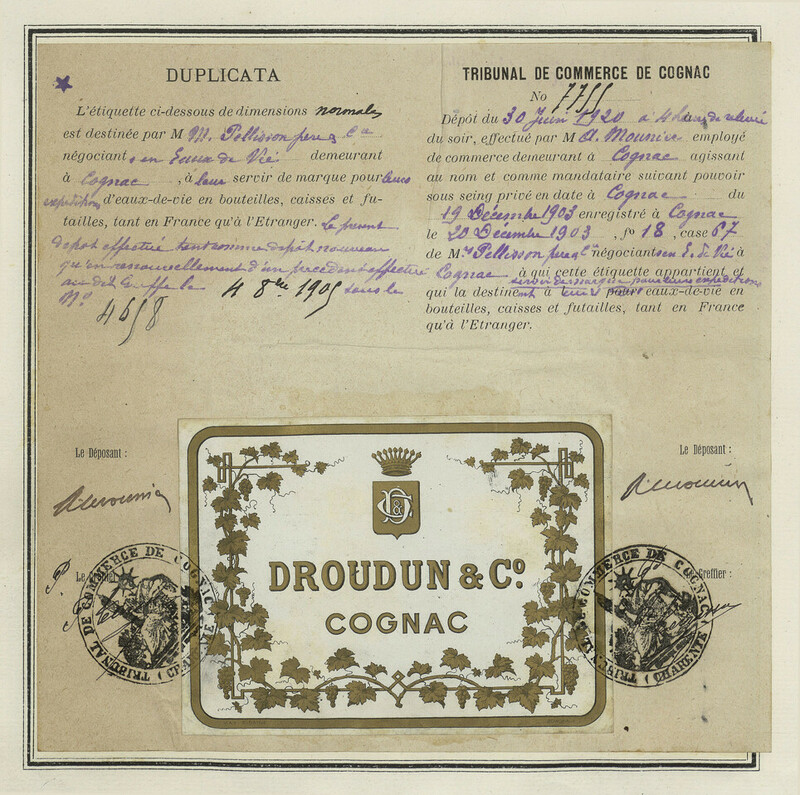 DUPLICATA
L'étiquette ci-dessous de dimensions normales
est destinée par M M. Pellisson père & Cie
négociants en Eaux de Vie demeurant
à Cognac, à leur servir de marque pour leurs
expéditions d'eaux-de-vie en bouteilles, caisses et fu-
tailles, tant en France qu'à l'Etranger. Le présent
dépôt effectué tant comme dépôt nouveau
qu'en renouvellement d'un précédent effectué
au dit Greffe le 4 8bre 1905 sous le
No 4658
TRIBUNAL DE COMMERCE DE COGNAC
No 7755
Dépôt du 30 Juin 1920 à 4 heures de relevée
du soir, effectué par M A. Mounier employé
de commerce demeurant à Cognac agissant
au nom et comme mandataire suivant pouvoir
sous seing privé en date à Cognac du
19 Décembre 1903 enregistré à Cognac
le 20 Décembre 1903, fo 18, case 67
de Mrs Pellisson père & Cie négociants en E. de Vie à
Cognac à qui cette étiquette appartient et
servir de marque pour leurs expéditions
qui la destinent à leur pour eaux-de-vie en
bouteilles, caisses et futailles, tant en France
qu'à l'Etranger.
Le Déposant :
Le Déposant :
Le Greffier :
TRIBUNAL DE COMMERCE DE COGNAC (CHARENTE)
D&C
DROUDUN & Co.
COGNAC
TRIBUNAL DE COMMERCE DE COGNAC (CHARENTE)